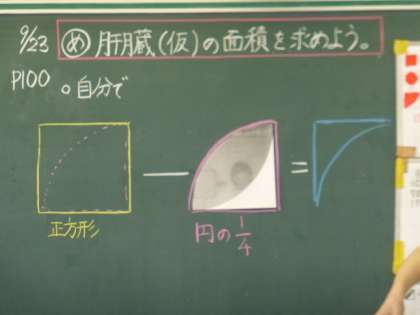 9/23 め 肝臓(仮)の面積を求めよう。
P100 ○自分で
— =
正方形 円の1/4